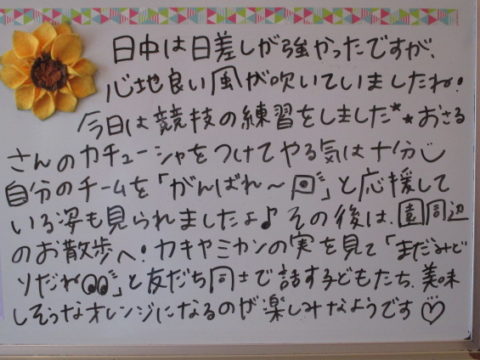 日中は日差しが強かったですが、
心地良い風が吹いていましたね!
今日は競技の練習をしました**おさる
さんのカチューシャをつけてやる気は十分♡
自分のチームを「がんばれ〜」と応援して
いる姿も見られましたよ♪その後は、園周辺
のお散歩へ!カキやミカンの実を見て「まだみど
りだね」と友だち同士で話す子どもたち。美味
しそうなオレンジになるのが楽しみなようです♡